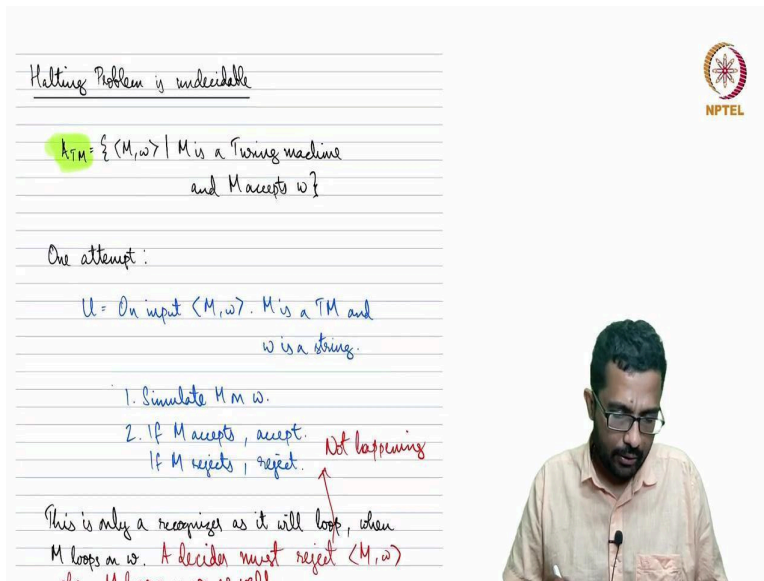 Halting Problem is undecidable
NPTEL
A_TM = { ⟨M,w⟩ | M is a Turing machine
and M accepts w}
One attempt :
U = On input ⟨M,w⟩. M is a TM and
w is a string.
1. Simulate M on w.
2. If M accepts, accept.
If M rejects, reject.
Not happening
This is only a recognizer as it will loop, when
M loops on w. A decider must reject ⟨M,w⟩